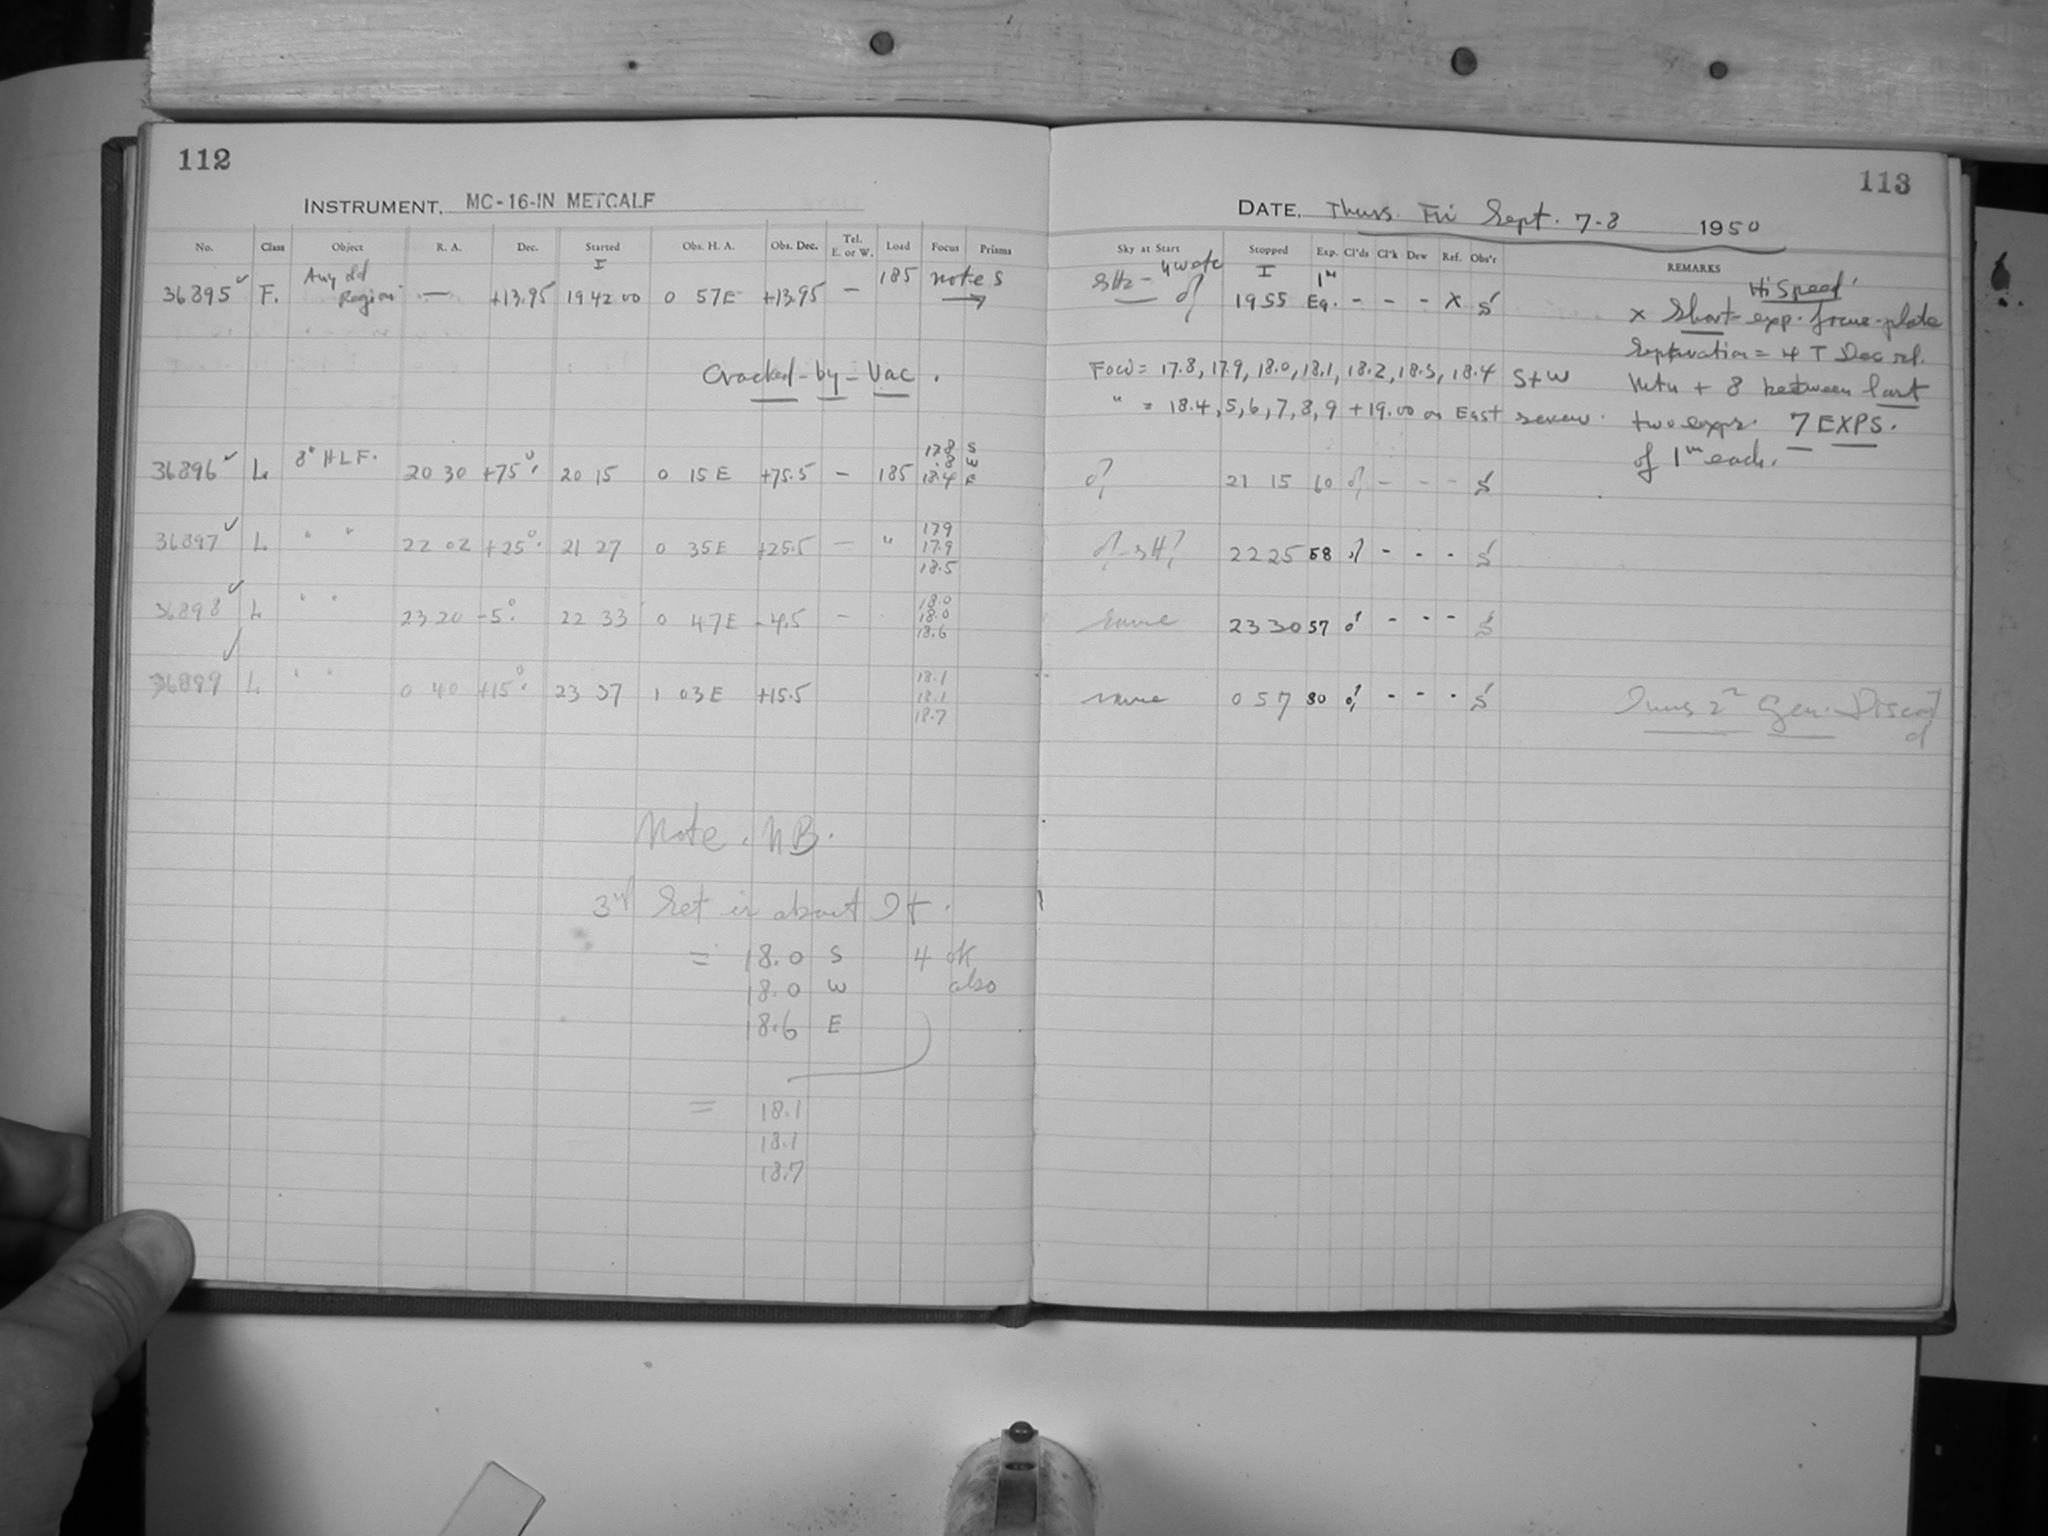 112
INSTRUMENT, MC-16-IN METCALF
No. Class Object R. A. Dec. Started Obs. H. A. Obs. Dec. Tel. E. or W. Load Focus Prisms
36895 ✓ F. Any old Region — +13.95 I 19 42 00 0 57E +13.95 — 185 notes →
Cracked-by-Vac.
36896 ✓ L. 8° HLF. 20 30 +75° 20 15 0 15 E +75.5 — 185 17.8 S .8 W 18.4 E
36897 ✓ L. " " 22 02 +25° 21 27 0 35E +25.5 — " 17.9 17.9 18.5
36898 ✓ L " " 23 20 -5° 22 33 0 47E -4.5 — 18.0 18.0 18.6
36899 ✓ L. " " 0 40 +15° 23 37 1 03E +15.5 18.1 18.1 18.7
Note. NB.
3rd Set is about It.
= 18.0 S 4 ok
18.0 W also
18.6 E
= 18.1
18.1
18.7
113
DATE, Thurs. Fri Sept. 7-8 1950
Sky at Start Stopped Exp. Cl'ds Cl'k Dew Ref. Obs'r REMARKS
I 1955 1m Eq. - - - X S
Hi Speed
x Short-exp. focus-plate
Separation = 4 T Dec rel.
+ 8 between last
two exps. 7 EXPS.
of 1m each.
Focus = 17.8, 17.9, 18.0, 18.1, 18.2, 18.3, 18.4 S+W
" = 18.4, 5, 6, 7, 8, 9 + 19.00 on East screw.
21 15 60 - - - S
22 25 58 - - - S
same 23 30 57 - - - S
same 0 57 80 - - - S
2 Gen.